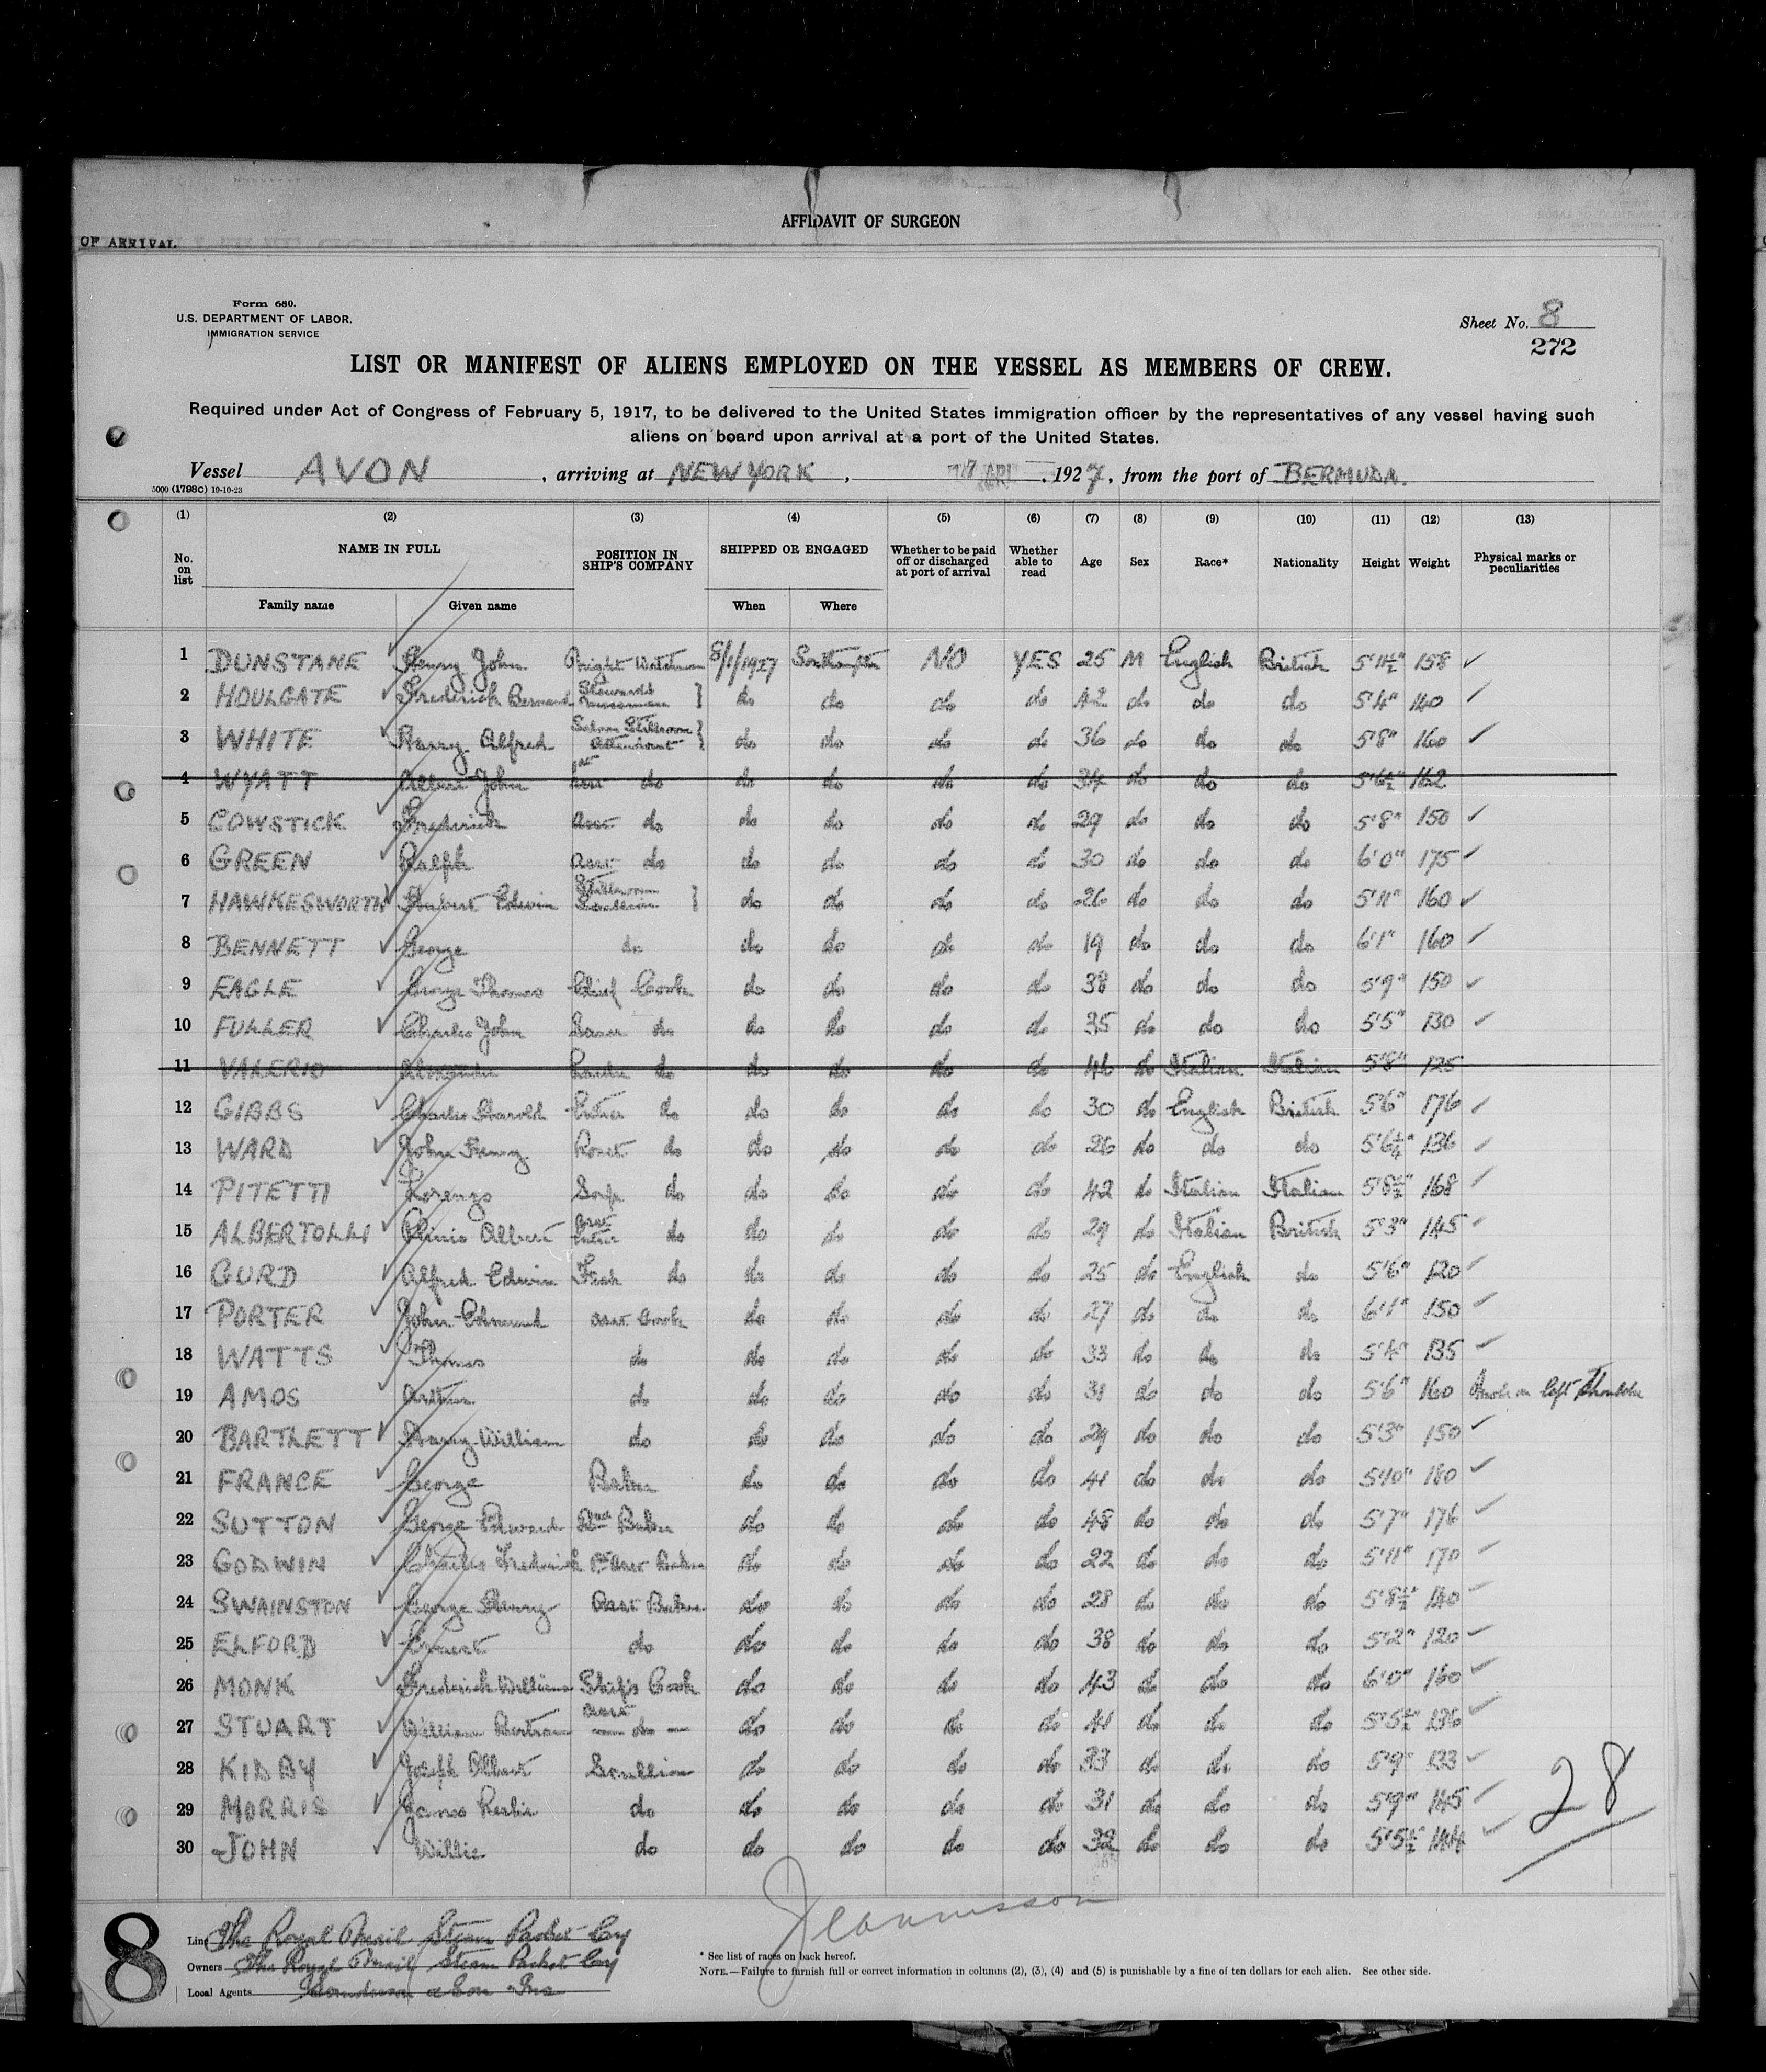 AFFIDAVIT OF SURGEON
OF ARRIVAL
Form 680.
U.S. DEPARTMENT OF LABOR.
IMMIGRATION SERVICE
Sheet No. 8
272
LIST OR MANIFEST OF ALIENS EMPLOYED ON THE VESSEL AS MEMBERS OF CREW.
Required under Act of Congress of February 5, 1917, to be delivered to the United States immigration officer by the representatives of any vessel having such
aliens on board upon arrival at a port of the United States.
Vessel AVON, arriving at NEW YORK, 1927, from the port of BERMUDA.
5000 (1798C) 19-10-23
(1) (2) (3) (4) (5) (6) (7) (8) (9) (10) (11) (12) (13)
No. on list NAME IN FULL POSITION IN SHIP'S COMPANY SHIPPED OR ENGAGED Whether to be paid off or discharged at port of arrival Whether able to read Age Sex Race* Nationality Height Weight Physical marks or peculiarities
Family name Given name When Where
1 DUNSTANE Henry John Night Watchman 8/1/1927 Southampton NO YES 25 M English British 5'11½" 158
2 HOULGATE Frederick Bernard Steward's } do do do do 42 do do do 5'4" 140
3 WHITE Harry Alfred Saloon Stillroom Attendant } do do do do 36 do do do 5'8" 160
4 WYATT Albert John do do do do do 34 do do do 5'6½" 162
5 COWSTICK Frederick Asst do do do do do 29 do do do 5'8" 150
6 GREEN Ralph Asst do do do do do 30 do do do 6'0" 175
7 HAWKESWORTH Hubert Edwin Stillroom Scullion } do do do do 26 do do do 5'11" 160
8 BENNETT George do do do do do 19 do do do 6'1" 160
9 EAGLE George Thomas Chief Cook do do do do 38 do do do 5'9" 150
10 FULLER Charles John do do do do do 35 do do do 5'5" 130
11 VALERIO Alexander Larder do do do do do 46 do Italian Italian 5'8" 125
12 GIBBS Charles Harold Entree do do do do do 30 do English British 5'6" 176
13 WARD John Henry Roast do do do do do 26 do do do 136
14 PITETTI Lorenzo Soup do do do do do 42 do Italian Italian 5'8½" 168
15 ALBERTOLLI Plinio Albert Asst Entree do do do do do 29 do Italian British 5'3" 145
16 GURD Alfred Edwin Fish do do do do do 25 do English do 5'6" 120
17 PORTER John Edmund Asst Cook do do do do 27 do do do 6'1" 150
18 WATTS Thomas do do do do do 33 do do do 5'4" 135
19 AMOS Arthur do do do do do 31 do do do 5'6" 160 on left shoulder
20 BARTLETT Harry William do do do do do 29 do do do 5'3" 150
21 FRANCE George Baker do do do do 41 do do do 5'10" 180
22 SUTTON George Edward 2nd Baker do do do do 48 do do do 5'7" 176
23 GODWIN Charles Frederick 1st Asst Baker do do do do 22 do do do 5'11" 170
24 SWAINSTON George Henry Asst Baker do do do do 28 do do do 5'8½" 140
25 ELFORD Ernest do do do do do 38 do do do 5'2" 120
26 MONK Frederick William Ship's Cook do do do do 43 do do do 6'0" 160
27 STUART William Bertram Asst do do do do do 41 do do do 5'5½" 136
28 KIDBY Joseph Albert Scullion do do do do 33 do do do 5'9" 133
29 MORRIS James Leslie do do do do do 31 do do do 5'9" 145
30 JOHN Willie do do do do do 32 do do do 5'5½" 144
28
8
Line The Royal Mail Steam Packet Coy
Owners The Royal Mail Steam Packet Coy
Local Agents Sanderson & Son Inc
* See list of races on back hereof.
NOTE.—Failure to furnish full or correct information in columns (2), (3), (4) and (5) is punishable by a fine of ten dollars for each alien. See other side.